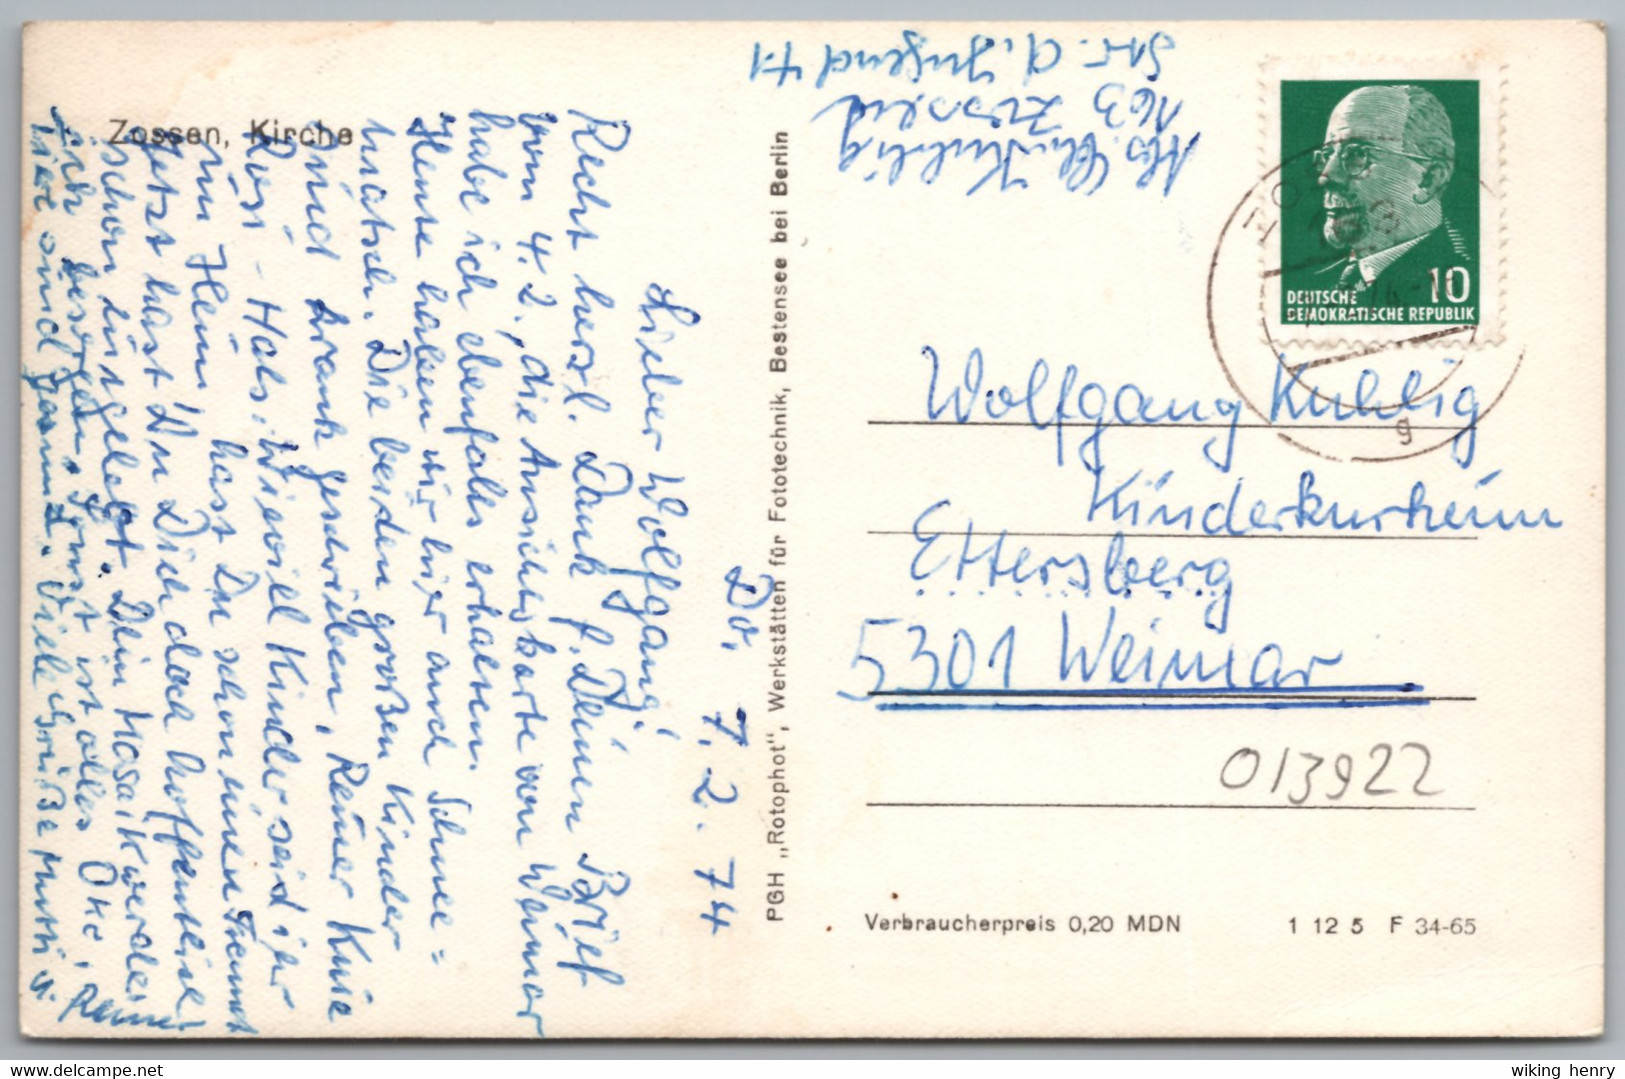 Zossen, Kirche
Do,
7. 2. 74
Lieber Wolfgang!
Recht herzl. Dank f. Deinen Brief
vom 4. 2., die Ansichtskarte von Weimar
habe ich ebenfalls erhalten.
Heute haben wir hier auch Schnee=
matsch. Die beiden großen Kinder
sind krank geschrieben, Reiner Knie
Rosi - Hals. Wieviel Kinder seid ihr
im Heim, hast Du schon einen Freund
Jetzt hast Du Dich doch hoffentlich
schon eingelebt. Dein Mosaik werde
ich besorgen. Sonst ist alles Oke,
wir sind gesund. Viele Grüße Mutti u.
Reiner
PGH „Rotophot", Werkstätten für Fototechnik, Bestensee bei Berlin
Abs. Kuhlig
163 Zossen
Str. d. Jugend 41
DEUTSCHE
DEMOKRATISCHE REPUBLIK
10
g
Wolfgang Kuhlig
Kinderkurheim
Ettersberg
5301 Weimar
013922
Verbraucherpreis 0,20 MDN
1 12 5 F 34-65
wiking henry